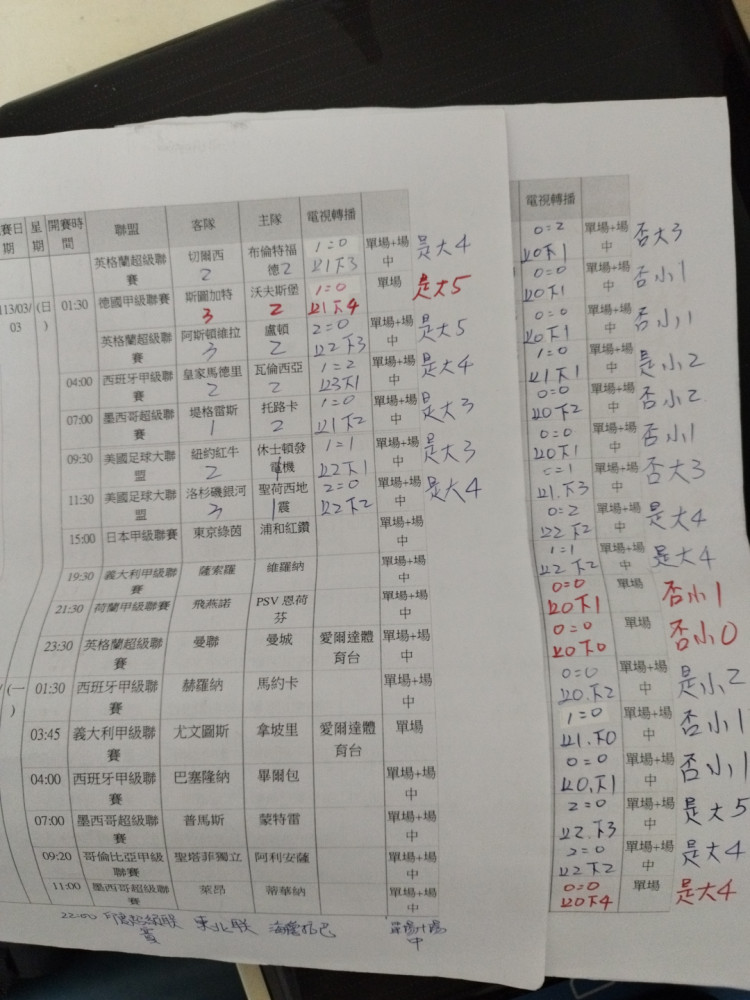 賽日期 星期 開賽時間 聯盟 客隊 主隊 電視轉播
英格蘭超級聯賽 切爾西 2 布倫特福德 2 1=0 上1下3 單場+場中 是大4
113/03/03 (日) 01:30 德國甲級聯賽 斯圖加特 3 沃夫斯堡 2 1=0 上1下4 單場 是大5
英格蘭超級聯賽 阿斯頓維拉 3 盧頓 2 2=0 上2下3 單場+場中 是大5
04:00 西班牙甲級聯賽 皇家馬德里 2 瓦倫西亞 2 1=2 上3下1 單場+場中 是大4
07:00 墨西哥超級聯賽 堤格雷斯 1 托路卡 2 1=0 上1下2 單場+場中 是大3
09:30 美國足球大聯盟 紐約紅牛 2 休士頓發電機 1 1=1 上2下1 單場+場中 是大3
11:30 美國足球大聯盟 洛杉磯銀河 3 聖荷西地震 1 2=0 上2下2 單場+場中 是大4
15:00 日本甲級聯賽 東京綠茵 浦和紅鑽 單場+場中
19:30 義大利甲級聯賽 薩索羅 維羅納 單場+場中
21:30 荷蘭甲級聯賽 飛燕諾 PSV 恩荷芬 單場+場中
23:30 英格蘭超級聯賽 曼聯 曼城 愛爾達體育台 單場+場中
(一) 01:30 西班牙甲級聯賽 赫羅納 馬約卡 單場+場中
03:45 義大利甲級聯賽 尤文圖斯 拿坡里 愛爾達體育台 單場
04:00 西班牙甲級聯賽 巴塞隆納 畢爾包 單場+場中
07:00 墨西哥超級聯賽 普馬斯 蒙特雷 單場+場中
09:20 哥倫比亞甲級聯賽 聖塔菲獨立 阿利安薩 單場+場中
11:00 墨西哥超級聯賽 萊昂 蒂華納 單場+場中
22:00 東北联 單場+場中
電視轉播
0=2 上0下1 單場+場中 否大3
0=0 上0下1 單場+場中 否小1
0=0 上0下1 單場+場中 否小1
1=0 上1下1 單場+場中 是小2
0=0 上0下2 單場+場中 否小2
0=0 上0下1 單場+場中 否小1
上1.下3 單場+場中 否大3
0=2 上2下2 單場+場中 是大4
1=1 上2下2 單場+場中 是大4
0=0 上0下1 單場 否小1
0=0 上0下0 單場 否小0
0=0 上0.下2 單場+場中 是小2
1=0 上1.下0 單場+場中 否小1
0=0 上0.下1 單場+場中 否小1
2=0 上2.下3 單場+場中 是大5
2=0 上2下2 單場+場中 是大4
0=0 上0下4 單場 是大4